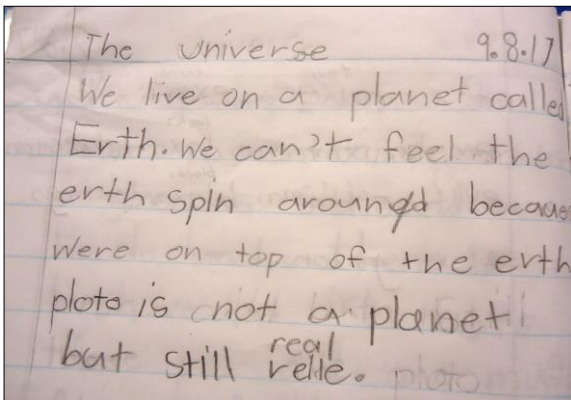 The universe 9.8.17
We live on a planet called
Erth. We can't feel the
erth spin aroungd becaus
were on top of the erth
ploto is not a planet
but still real relle.
ploto